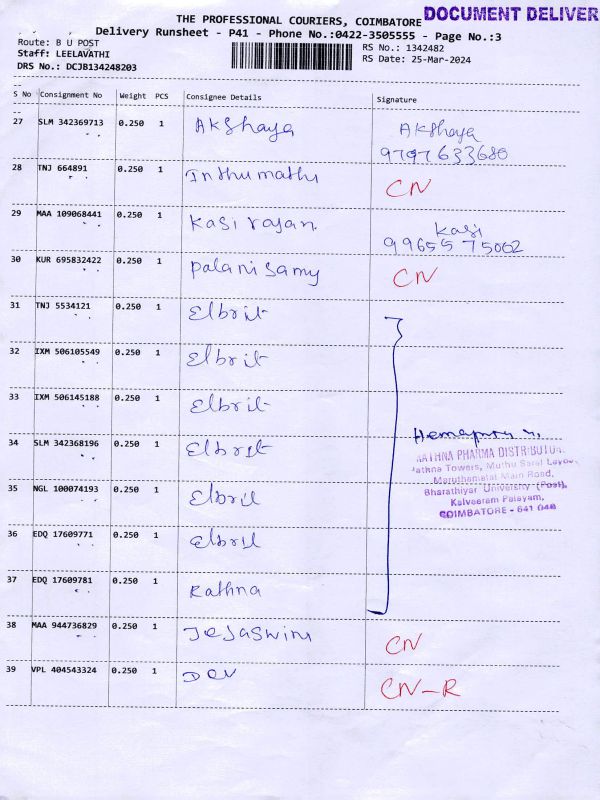 THE PROFESSIONAL COURIERS, COIMBATORE DOCUMENT DELIVER
Delivery Runsheet - P41 - Phone No.:0422-3505555 - Page No.:3
Route: B U POST RS No.: 1342482
Staff: LEELAVATHI RS Date: 25-Mar-2024
DRS No.: DCJB134248203
S No Consignment No Weight PCS Consignee Details Signature
27 SLM 342369713 0.250 1 Akshaya Akshaya
9797633680
28 TNJ 664891 0.250 1 Inthumathi CN
29 MAA 109068441 0.250 1 Kasi rajan Kasi
9965575002
30 KUR 695832422 0.250 1 Palanisamy CN
31 TNJ 5534121 0.250 1 Elbrit
32 IXM 506105549 0.250 1 Elbrit
33 IXM 506145188 0.250 1 Elbrit
34 SLM 342368196 0.250 1 Elbrit
RATHNA PHARMA DISTRIBUTOR
Rathna Towers, Muthu Saral Layout
Maruthamalai Main Road,
35 NGL 100074193 0.250 1 Elbril
Bharathiyar University (Post),
Kalveeram Palayam,
COIMBATORE - 641 046
36 EDQ 17609771 0.250 1 Elbril
37 EDQ 17609781 0.250 1 Rathna
38 MAA 944736829 0.250 1 Tejaswini CN
39 VPL 404543324 0.250 1 Dev CN-R